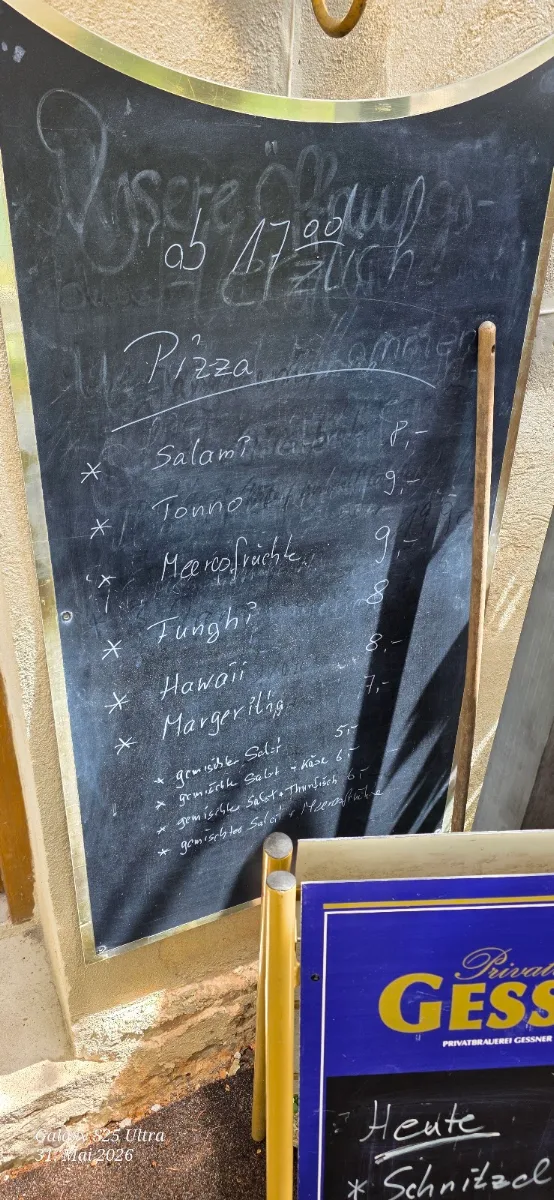 Unsere Öffnungs-
ab 17⁰⁰
Pizza
* Salami 8,-
* Tonno 9,-
* Meeresfrüchte 9,-
* Funghi 8
* Hawaii 8,-
* Margerita 7,-
* gemischter Salat 5,-
* gemischte Salat + Käse 6,-
* gemischte Salat + Thunfisch 6,-
* gemischter Salat + Meeresfrüchte
Privat
GESS
PRIVATBRAUEREI GESSNER
Heute
* Schnitzel
Galaxy S25 Ultra
31. Mai 2026